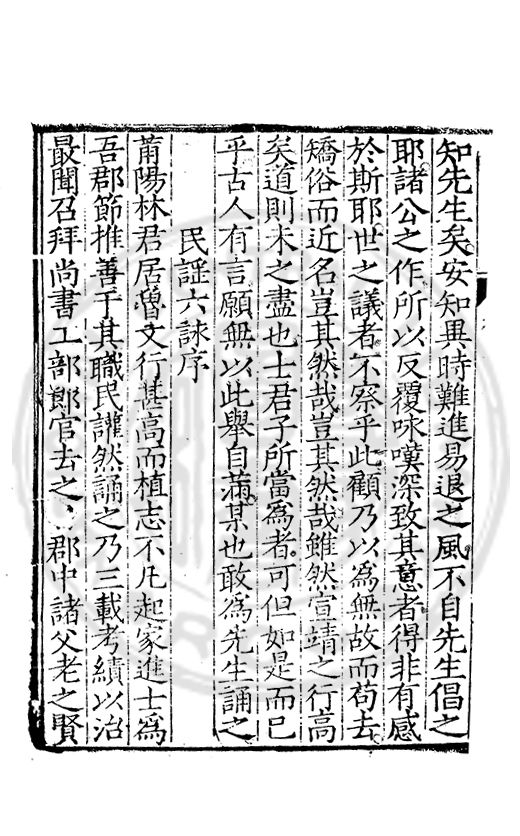 知先生矣安知異時難進易退之風不自先生倡之
耶諸公之作所以反覆咏嘆深致其意者得非有感
於斯耶世之議者不察乎此顧乃以爲無故而苟去
矯俗而近名豈其然哉豈其然哉雖然宣靖之行高
矣道則未之盡也士君子所當爲者可但如是而已
乎古人有言願無以此舉自滿某也敢爲先生誦之
民謡六誅序
莆陽林君居魯文行甚高而植志不凡起家進士爲
吾郡節推善于其職民讙然誦之乃三載考績以治
最聞召拜尚書工部郎官去之郡中諸父老之賢